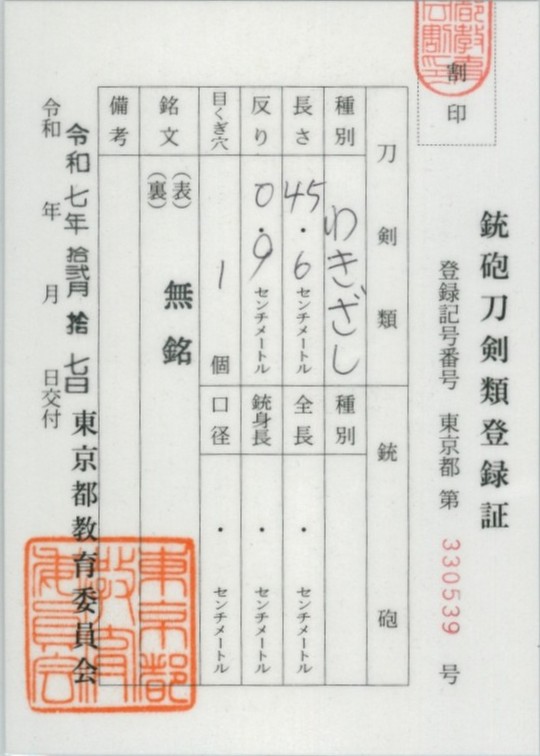 割印
銃砲刀剣類登録証
登録記号番号 東京都 第 330539 号
刀剣類
種別 わきざし
長さ 45.6センチメートル
反り 0.9センチメートル
目くぎ穴 1個
銘文 (表) 無銘
(裏)
備考
銃砲
種別
全長 ・センチメートル
銃身長 ・センチメートル
口径 ・センチメートル
令和 年 月 日交付
令和七年拾弐月拾七日
東京都教育委員会
東京都教育委員会